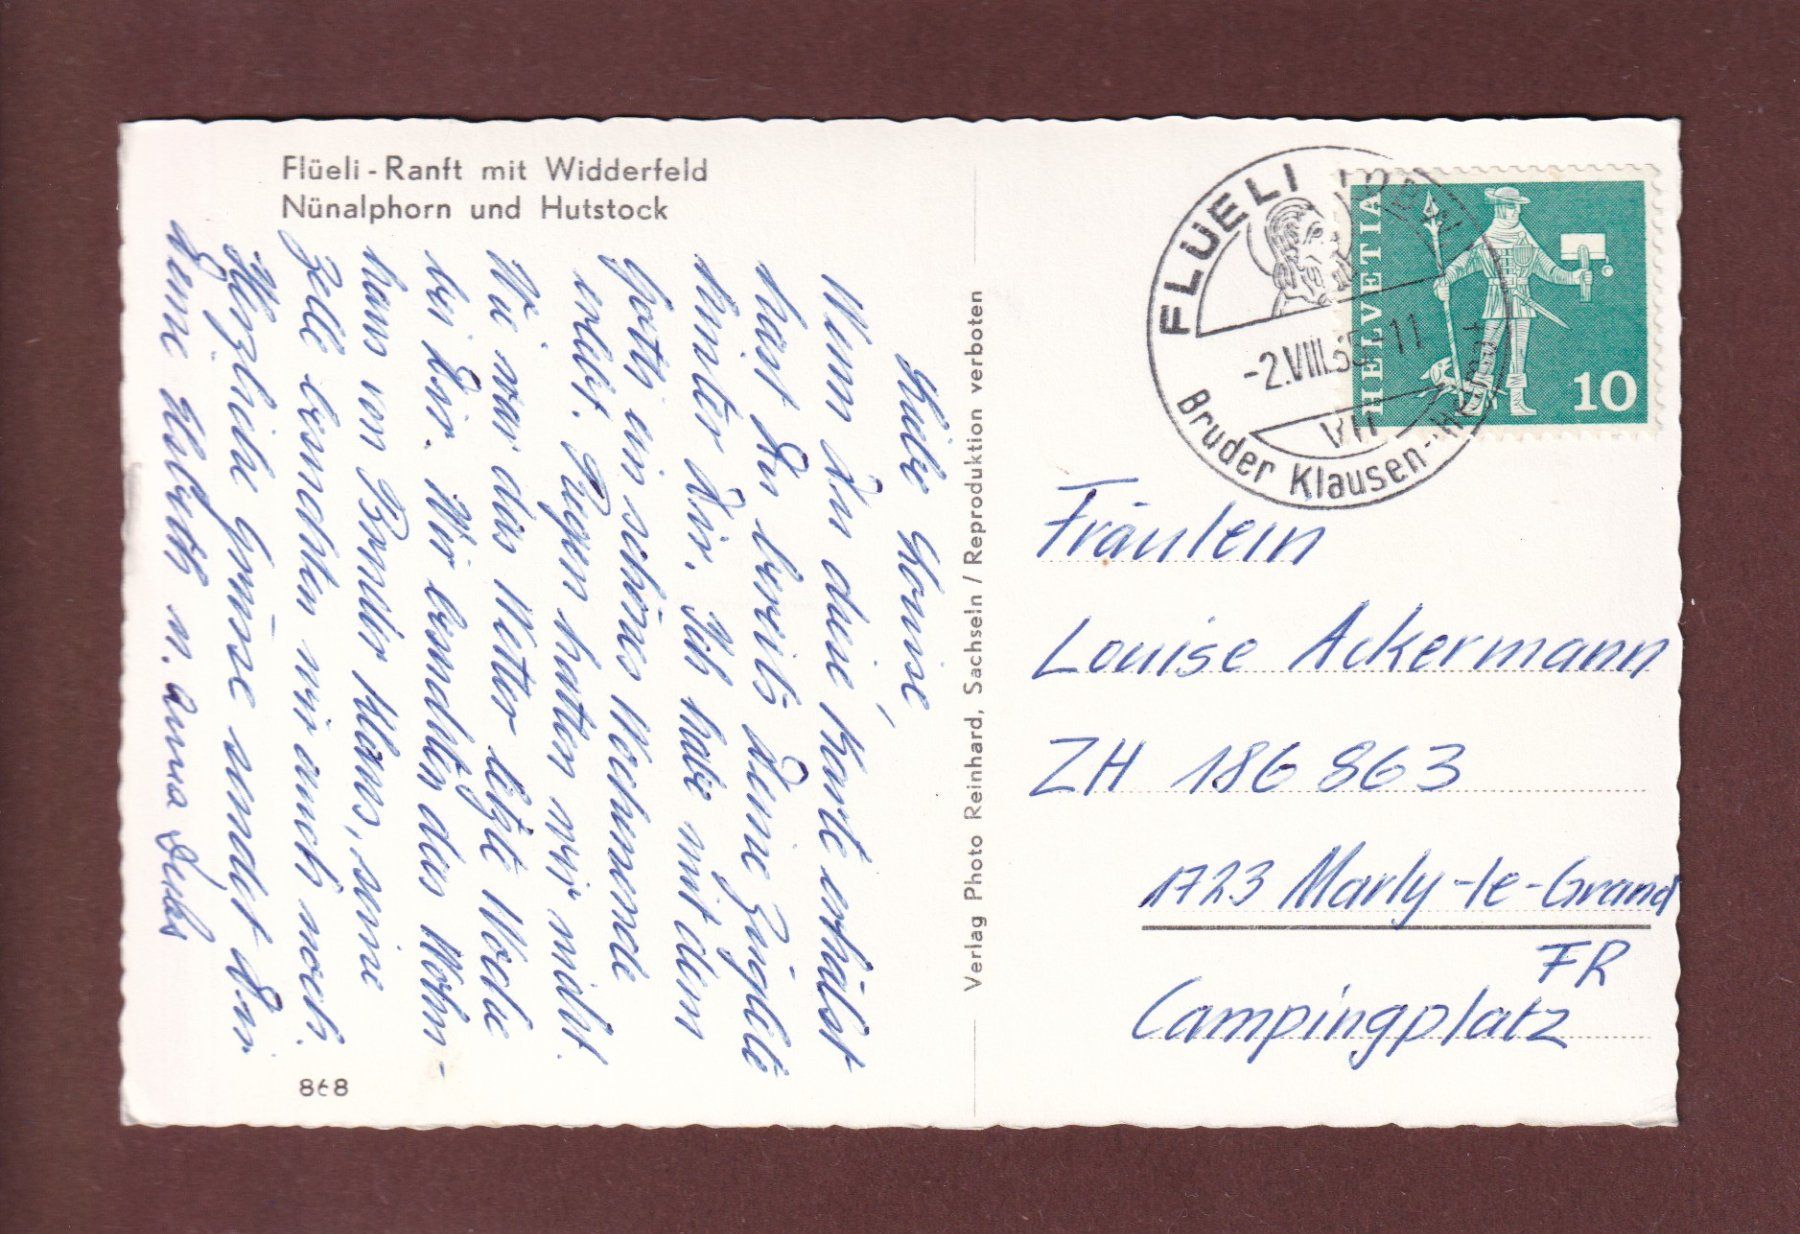 Flüeli - Ranft mit Widderfeld
Nünalphorn und Hutstock
Liebe Louise,
Wenn Du diese Karte erhälst
hast Du bereits Deine Züglete
hinter Dir. Ich habe mit dem
Gotti ein schönes Wochenende
erlebt. Regen hatten wir nicht.
Wie war das Wetter letzte Woche
bei Dir. Wir besuchten das Wohn-
haus von Bruder Klaus, seine
Zelle besuchten wir auch noch.
Herzliche Grüsse sendet Dir
Deine Elsbeth u. Anna
868
Verlag Photo Reinhard, Sachseln / Reproduktion verboten
FLÜELI
-2.VIII.65-11
Bruder Klausen-Heimat
HELVETIA
10
Fräulein
Louise Ackermann
ZH 186 863
1723 Marly-le-Grand
FR
Campingplatz